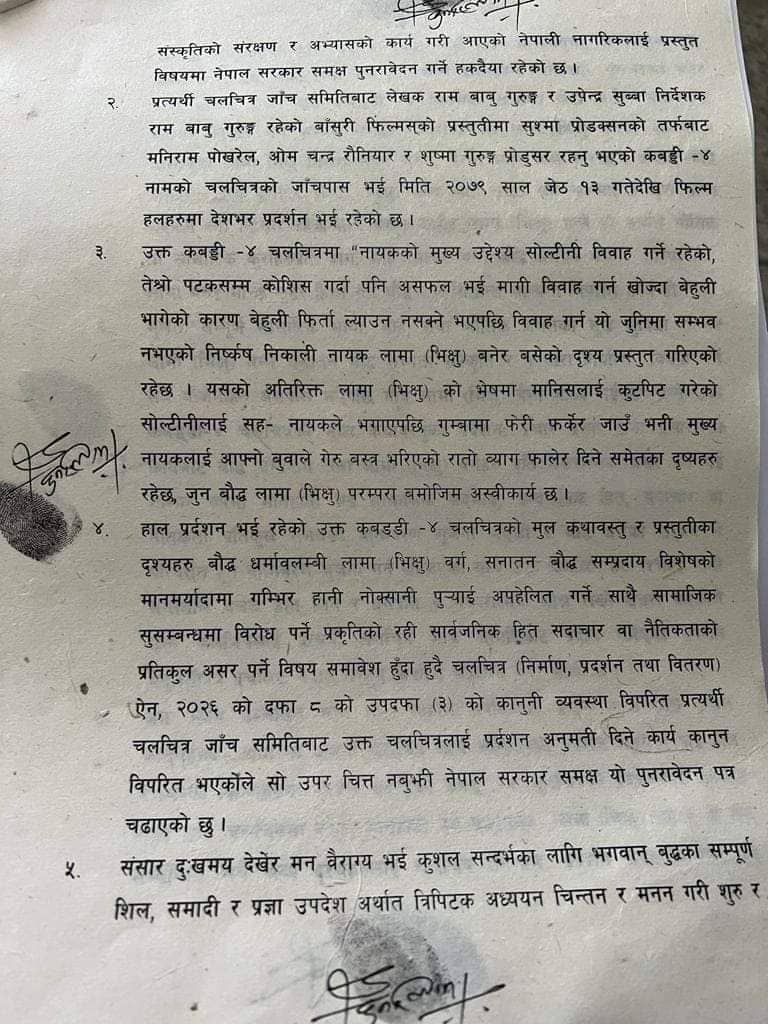 संस्कृतिको संरक्षण र अभ्यासको कार्य गरी आएको नेपाली नागरिकलाई प्रस्तुत
विषयमा नेपाल सरकार समक्ष पुनरावेदन गर्ने हकदैया रहेको छ ।
२. प्रत्यर्थी चलचित्र जाँच समितिबाट लेखक राम बाबु गुरुङ्ग र उपेन्द्र सुब्बा निर्देशक
राम बाबु गुरुङ्ग रहेको बाँसुरी फिल्मस्को प्रस्तुतीमा सुश्मा प्रोडक्सनको तर्फबाट
मनिराम पोखरेल, ओम चन्द्र रौनियार र शुष्मा गुरुङ्ग प्रोडुसर रहनु भएको कबड्डी -४
नामको चलचित्रको जाँचपास भई मिति २०७९ साल जेठ १३ गतेदेखि फिल्म
हलहरुमा देशभर प्रदर्शन भई रहेको छ ।
३. उक्त कबड्डी -४ चलचित्रमा "नायकको मुख्य उद्देश्य सोल्टीनी विवाह गर्ने रहेको,
तेश्रो पटकसम्म कोशिस गर्दा पनि असफल भई मागी विवाह गर्न खोज्दा बेहुली
भागेको कारण बेहुली फिर्ता ल्याउन नसक्ने भएपछि विवाह गर्न यो जुनिमा सम्भव
नभएको निर्ष्कष निकाली नायक लामा (भिक्षु) बनेर बसेको दृश्य प्रस्तुत गरिएको
रहेछ । यसको अतिरिक्त लामा (भिक्षु) को भेषमा मानिसलाई कुटपिट गरेको
सोल्टीनीलाई सह- नायकले भगाएपछि गुम्बामा फेरी फर्केर जाउँ भनी मुख्य
नायकलाई आफ्नो बुवाले गेरु बस्त्र भरिएको रातो व्याग फालेर दिने समेतका दृष्यहरु
रहेछ, जुन बौद्ध लामा (भिक्षु) परम्परा बमोजिम अस्वीकार्य छ ।
४. हाल प्रर्दशन भई रहेको उक्त कबड्डी -४ चलचित्रको मुल कथावस्तु र प्रस्तुतीका
दृश्यहरु बौद्ध धर्मावलम्बी लामा (भिक्षु) वर्ग, सनातन बौद्ध सम्प्रदाय विशेषको
मानमर्यादामा गम्भिर हानी नोक्सानी पुऱ्याई अपहेलित गर्ने साथै सामाजिक
सुसम्बन्धमा विरोध पर्ने प्रकृतिको रही सार्वजनिक हित सदाचार वा नैतिकताको
प्रतिकुल असर पर्ने विषय समावेश हुँदा हुदै चलचित्र (निर्माण, प्रदर्शन तथा वितरण)
ऐन, २०२६ को दफा ८ को उपदफा (३) को कानुनी व्यवस्था विपरित प्रत्यर्थी
चलचित्र जाँच समितिबाट उक्त चलचित्रलाई प्रर्दशन अनुमती दिने कार्य कानुन
विपरित भएकोले सो उपर चित्त नबुझी नेपाल सरकार समक्ष यो पुनरावेदन पत्र
चढाएको छु ।
५. संसार दुःखमय देखेर मन वैराग्य भई कुशल सन्दर्भका लागि भगवान् बुद्धका सम्पूर्ण
शिल, समादी र प्रज्ञा उपदेश अर्थात त्रिपिटक अध्ययन चिन्तन र मनन गरी शुरु र